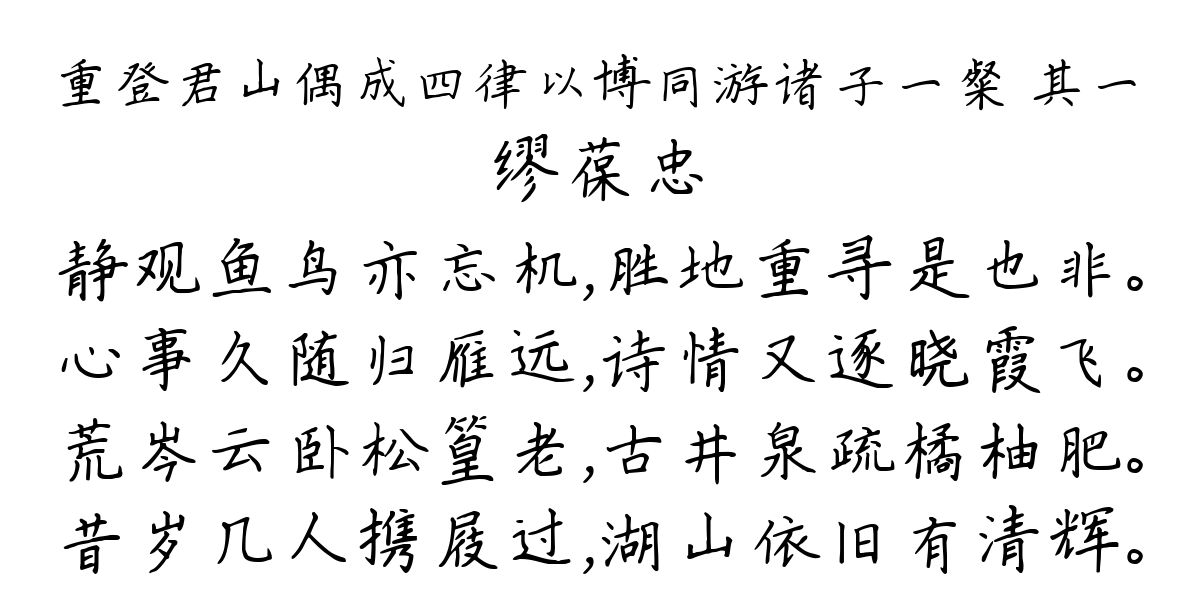 重登君山偶成四律以博同游诸子一粲 其一
缪葆忠
静观鱼鸟亦忘机,胜地重寻是也非。
心事久随归雁远,诗情又逐晓霞飞。
荒岑云卧松篁老,古井泉疏橘柚肥。
昔岁几人携屐过,湖山依旧有清辉。